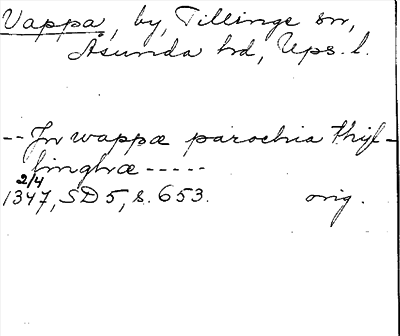 Vappa, by, Tillinge sn,
Åsunda hd, Ups. l.
-- In wappæ parochia thyl-
linghæ -----
2/4
1347, SD 5, s. 653. orig.